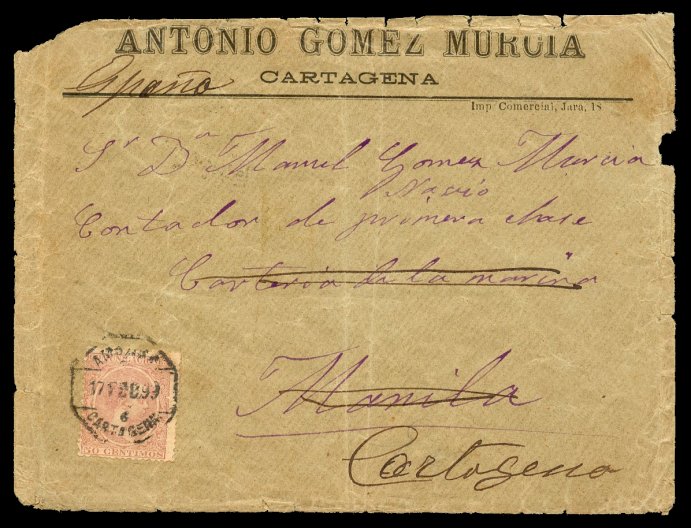 ANTONIO GOMEZ MURCIA
España
CARTAGENA
Imp. Comercial, Jara, 18
Sr Dn Manuel Gomez Murcia
Navio
Contador de primera clase
Cartería de la marina
Manila
Cartagena
17 FEB 99
6
CARTAGENA
50 CENTIMOS